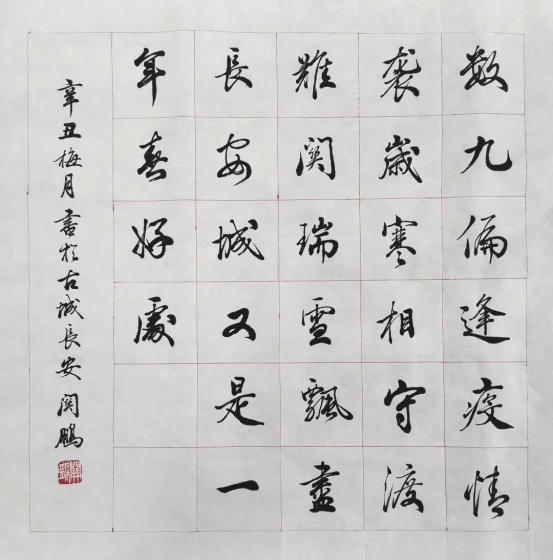 数九偏逢疫情
袭歲寒相守渡
難関瑞雪飄盡
長安城又是一
年春好處
辛丑梅月書於古城長安関鵬